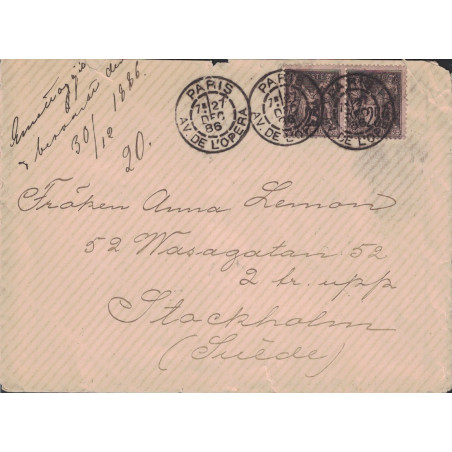 besvarat den
30/12 1886.
20.
PARIS
7E 27
DEC
86
AV. DE L'OPERA
PARIS
DEC
86
AV. DE L'OPERA
PARIS
DE L'OPERA
25
Fröken Anna Lemon
52 Wasagatan 52
2 tr. upp
Stockholm
(Suède)